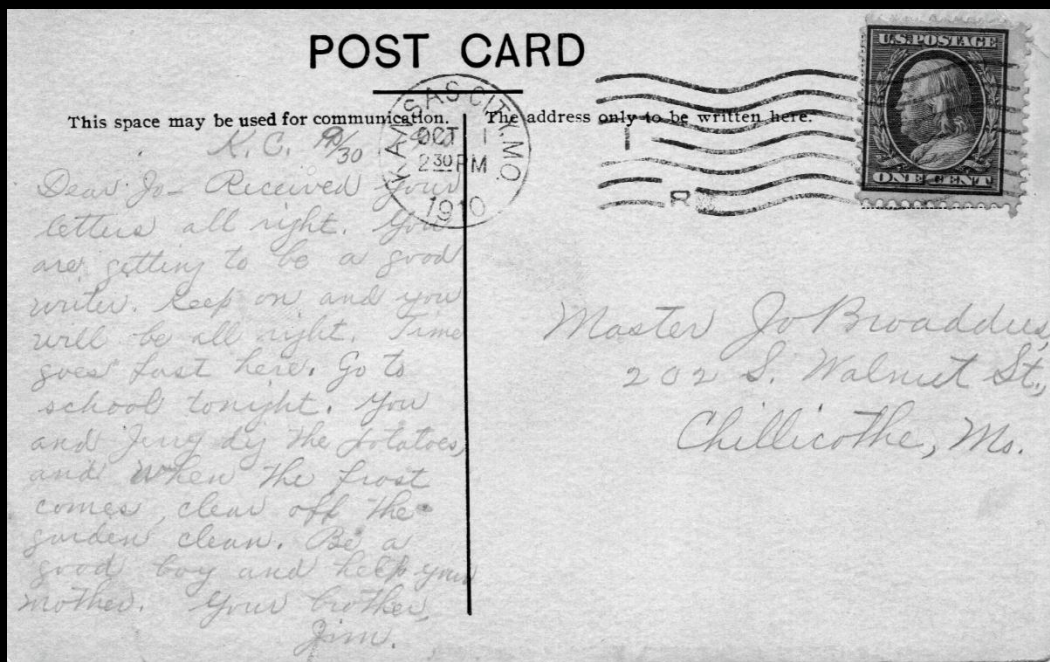 POST CARD
This space may be used for communication.
The address only to be written here.
KANSAS CITY, MO.
OCT 1
2 30 PM
1910
U.S. POSTAGE
ONE CENT
K.C. 9/30
Dear Jo- Received your
letters all right. You
are getting to be a good
writer. Keep on and you
will be all right. Time
goes fast here. Go to
school tonight. You
and Jerry dig the potatoes,
and when the frost
comes, clear off the
garden clean. Be a
good boy and help your
mother. Your brother,
Jim.
Master Jo Broaddus,
202 S. Walnut St.,
Chillicothe, Mo.